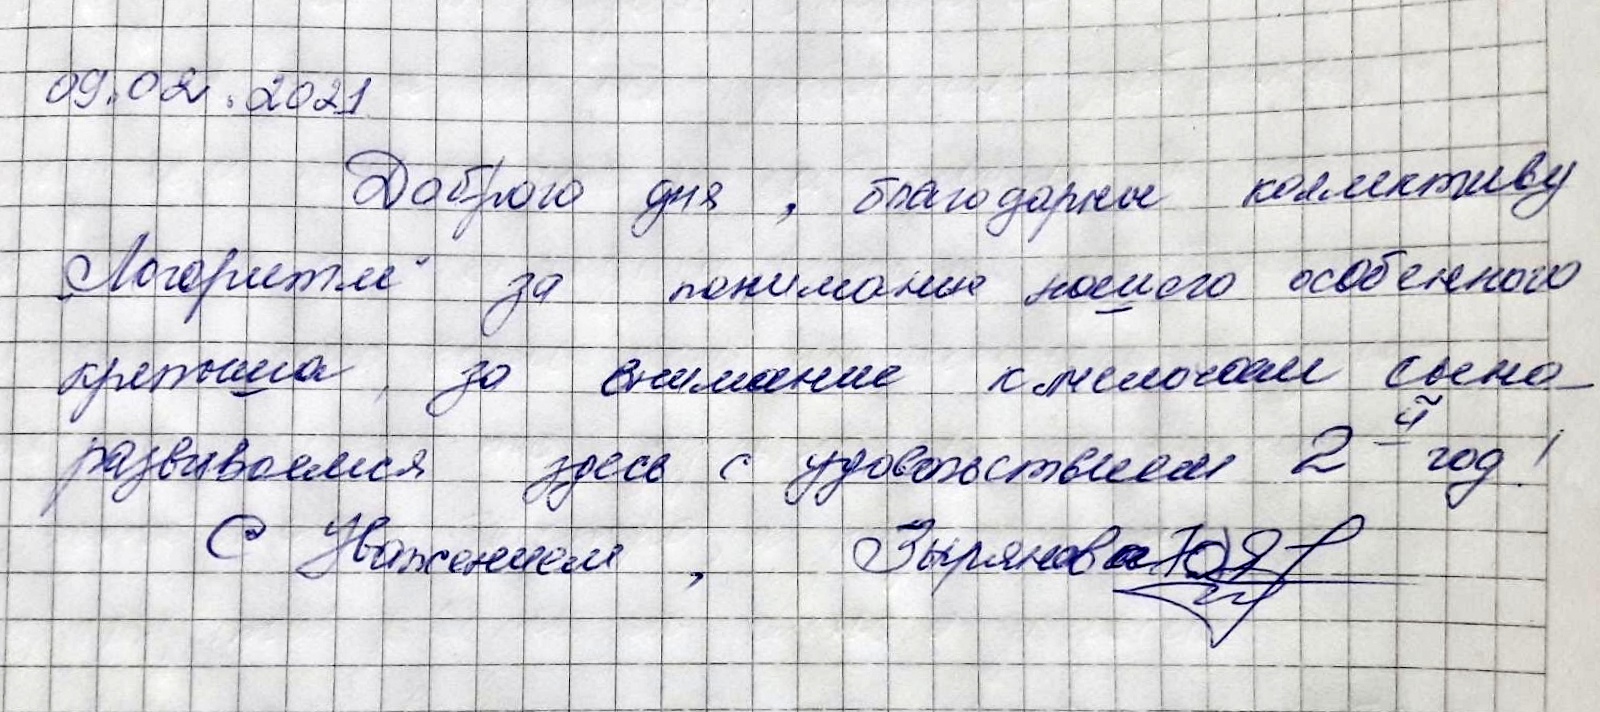 09.02.2021
Доброго дня, благодарны коллективу
„Логоритм" за понимание нашего особенного
крепыша, за внимание к мелочам сына
развиваемся здесь с удовольствием 2й год!
С Уважением, Зырянова